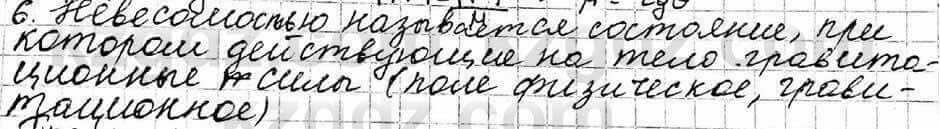 6. Невесомостью называется состояние, при
котором действующие на тело гравита-
ционные силы (поле физическое, грави-
тационное)